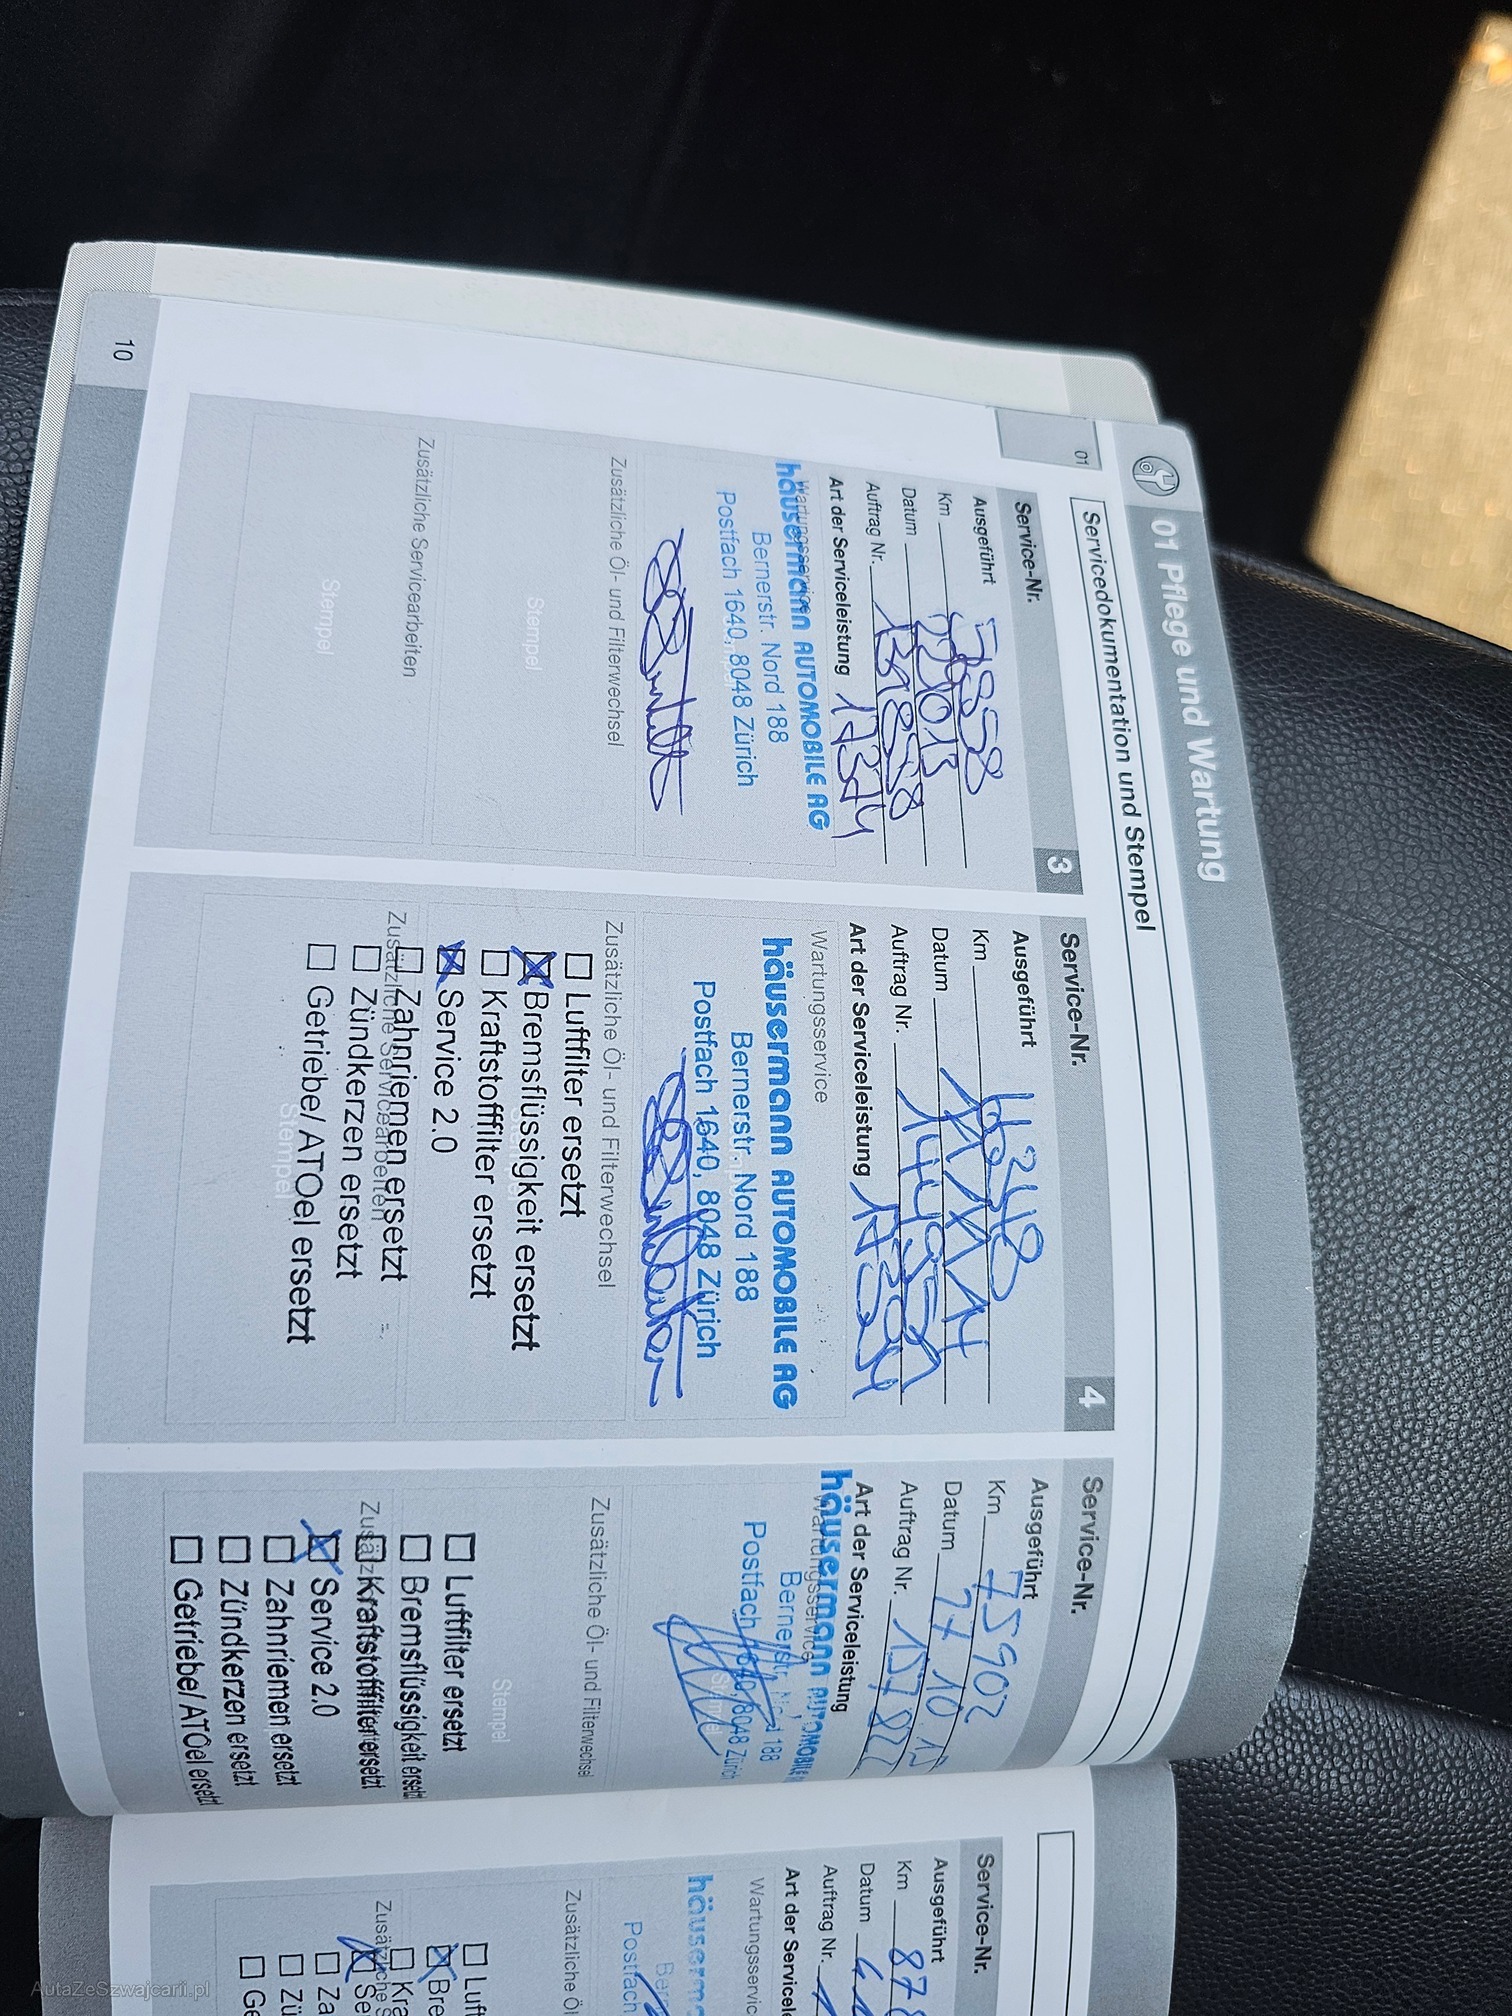 01 Pflege und Wartung
Servicedokumentation und Stempel
01
Service-Nr. 3
Ausgeführt
Km
Datum
Auftrag Nr. 139858
Art der Serviceleistung
Wartungsservice
häusermann AUTOMOBILE AG
Bernerstr. Nord 188
Postfach 1640, 8048 Zürich
Zusätzliche Öl- und Filterwechsel
Stempel
Zusätzliche Servicearbeiten
Stempel
Service-Nr. 4
Ausgeführt
Km
Datum
Auftrag Nr.
Art der Serviceleistung
Wartungsservice
häusermann AUTOMOBILE AG
Bernerstr. Nord 188
Postfach 1640, 8048 Zürich
Zusätzliche Öl- und Filterwechsel
Luftfilter ersetzt
Bremsflüssigkeit ersetzt
Kraftstofffilter ersetzt
Service 2.0
Zahnriemen ersetzt
Zusätzliche Servicearbeiten
Zündkerzen ersetzt
Getriebe/ATOel ersetzt
Stempel
Service-Nr.
Ausgeführt
Km 75902
Datum 17 10 13
Auftrag Nr.
Art der Serviceleistung
Wartungsservice
häusermann AUTOMOBILE
Bernerstr. Nord 188
Postfach 1640, 8048 Zürich
Zusätzliche Öl- und Filterwechsel
Stempel
Luftfilter ersetzt
Bremsflüssigkeit ersetzt
Kraftstofffilter ersetzt
Service 2.0
Zahnriemen ersetzt
Zündkerzen ersetzt
Getriebe/ATOel ersetzt
10
Service-Nr.
Ausgeführt
Km 878
Datum
Auftrag Nr.
Art der Servicel
Wartungsservic
häuserma
Bern
Postfach
Zusätzliche Öl
Luft
Bre
Kra
Se
Za
Zü
Ge
AutaZeSzwajcarii.pl